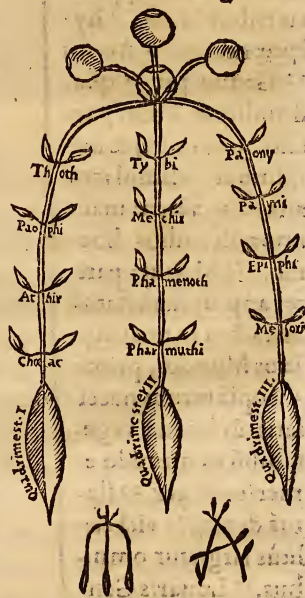 Thoth
Paophi
Athir
Choeac
Quadrimest. I
Tybi
Mechir
Phamenoth
Pharmuthi
Quadrimestre III
Paony
Payni
Epiphi
Mesori
Quadrimess. III.